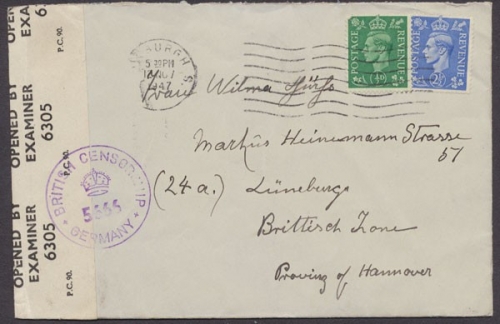 OPENED BY
EXAMINER
6305
P.C. 90.
OPENED BY
EXAMINER
6305
P.C. 90.
BRITISH CENSORSHIP
5666
GERMANY
5 PM
NOV
1947
POSTAGE
REVENUE
½D
POSTAGE
REVENUE
2½D
Frau Wilma
Markus Heinemann Strasse
57
(24 a.) Lüneburg
Brittisch Zone
Provinz of Hannover